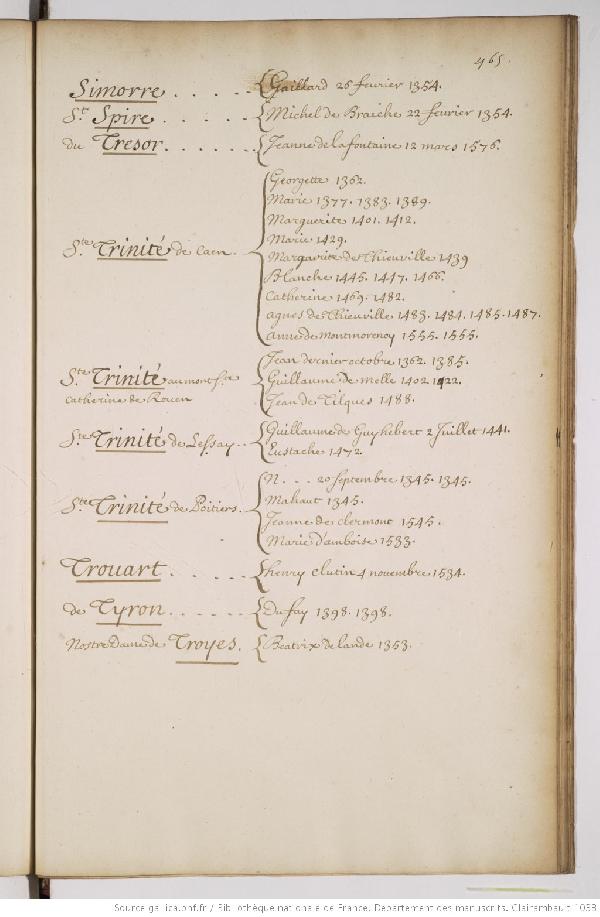 465.
Simorre . . . . . { Gaillard 26 fevrier 1354.
St. Spire . . . . . { Michel de Braiche 22 fevrier 1354.
du Tresor . . . . . . { Jeanne de la fontaine 12 mars 1576.
Georgette 1362.
Marie 1377. 1383. 1389.
Marguerite 1401. 1412.
Marie 1429.
Ste. Trinité de Caen. { Marguerite de Thieuville 1439
Blanche 1445. 1447. 1466.
Catherine 1469. 1482.
agnes de Thieuville 1483. 1484. 1485. 1487.
anne de montmorency 1555. 1555.
Jean dernier octobre 1362. 1385.
Ste. Trinité au mont Ste { Guillaume de melle 1402. 1422.
Catherine de Rouen { Jean de Tilques 1488.
Ste. Trinité de Lessay . . { Guillaume de Guyhebert 2 Juillet 1441.
Eustache 1472.
N . . . 20 septembre 1345. 1345.
Mahaut 1345.
Ste. Trinité de Poitiers. { Jeanne de clermont 1545.
Marie d'amboise 1533.
Trouart . . . . . { henry clutin 4 novembre 1534.
de Tyron . . . . . { Du fay 1398. 1398.
Nostre Dame de Troyes. { Beatrix de lande 1353.
Source gallica.bnf.fr / Bibliothèque nationale de France. Département des manuscrits. Clairambault 1038